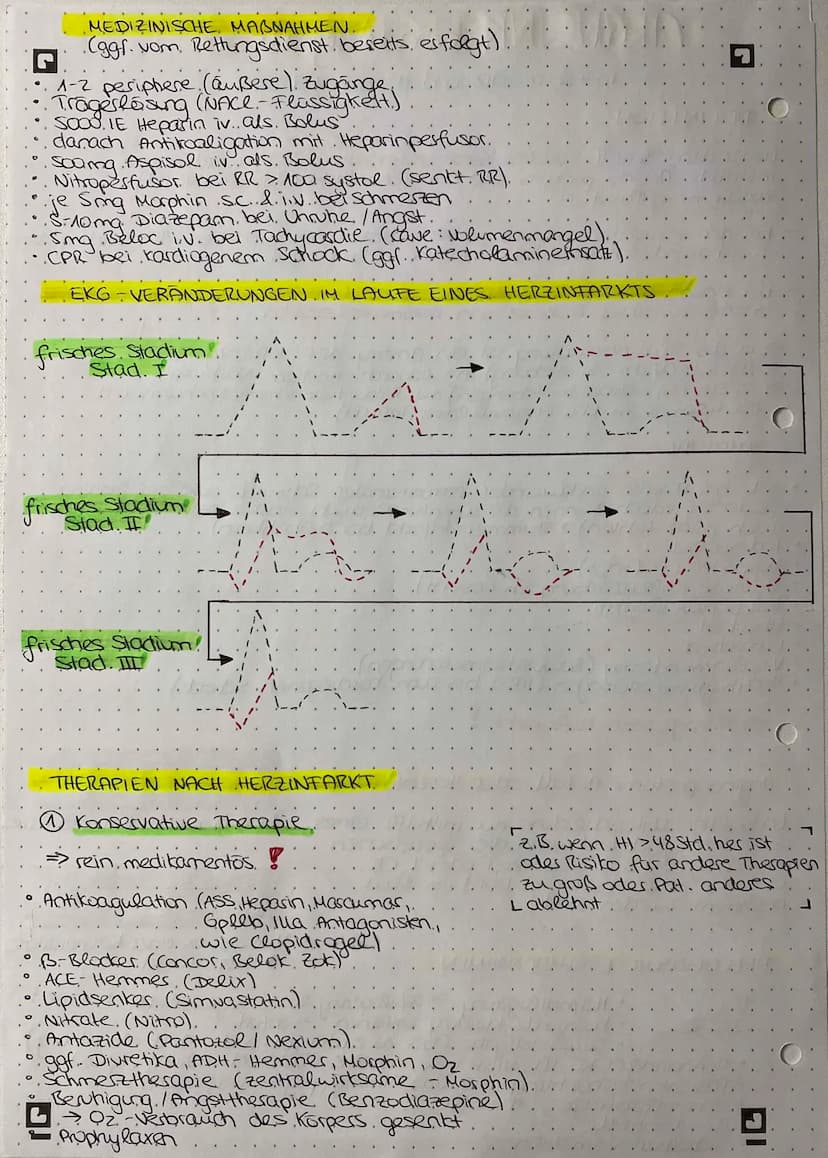 MEDIZINISCHE MAßNAHMEN
(ggf. vom Rettungsdienst bereits erfolgt)
• 1-2 periphere (äußere) Zugänge
• Trägerlösung (NACL-Flüssigkeit)
• 5000 IE Heparin iv. als Bolus
• danach Antikoaligation mit Heparinperfusor
• 500mg Aspisol iv als Bolus
• Nitroperfusor bei RR > 100 systol. (senkt RR)
• je 5mg Morphin s.c. & i.v. bei Schmerzen
• 5-10mg Diazepam bei Unruhe / Angst
• 5mg Beloc i.v. bei Tachycardie (cave: Volumenmangel)
• CPR bei kardiogenem Schock (ggf. Katecholamineinsatz)
EKG-VERÄNDERUNGEN IM LAUFE EINES HERZINFARKTS
frisches Stadium
Stad. I
frisches Stadium
Stad. II
frisches Stadium
Stad. III
THERAPIEN NACH HERZINFARKT
① Konservative Therapie
⇒ rein medikamentös !
z.B. wenn HI > 48 Std. her ist
oder Risiko für andere Therapien
zu groß oder Pat. anderes
ablehnt
• Antikoagulation (ASS, Heparin, Marcumar,
GpIIb, IIIa Antagonisten,
wie Clopidrogel)
• β-Blocker (Concor, Belok Zok)
• ACE-Hemmer (Delix)
• Lipidsenker (Simvastatin)
• Nitrate (Nitro)
• Antazide (Pantozol / Nexium)
• ggf. Diuretika, ADH-Hemmer, Morphin, O2
• Schmerztherapie (zentralwirksame - Morphin)
• Beruhigung / Angsttherapie (Benzodiazepine)
→ O2-Verbrauch des Körpers gesenkt
• Prophylaxen